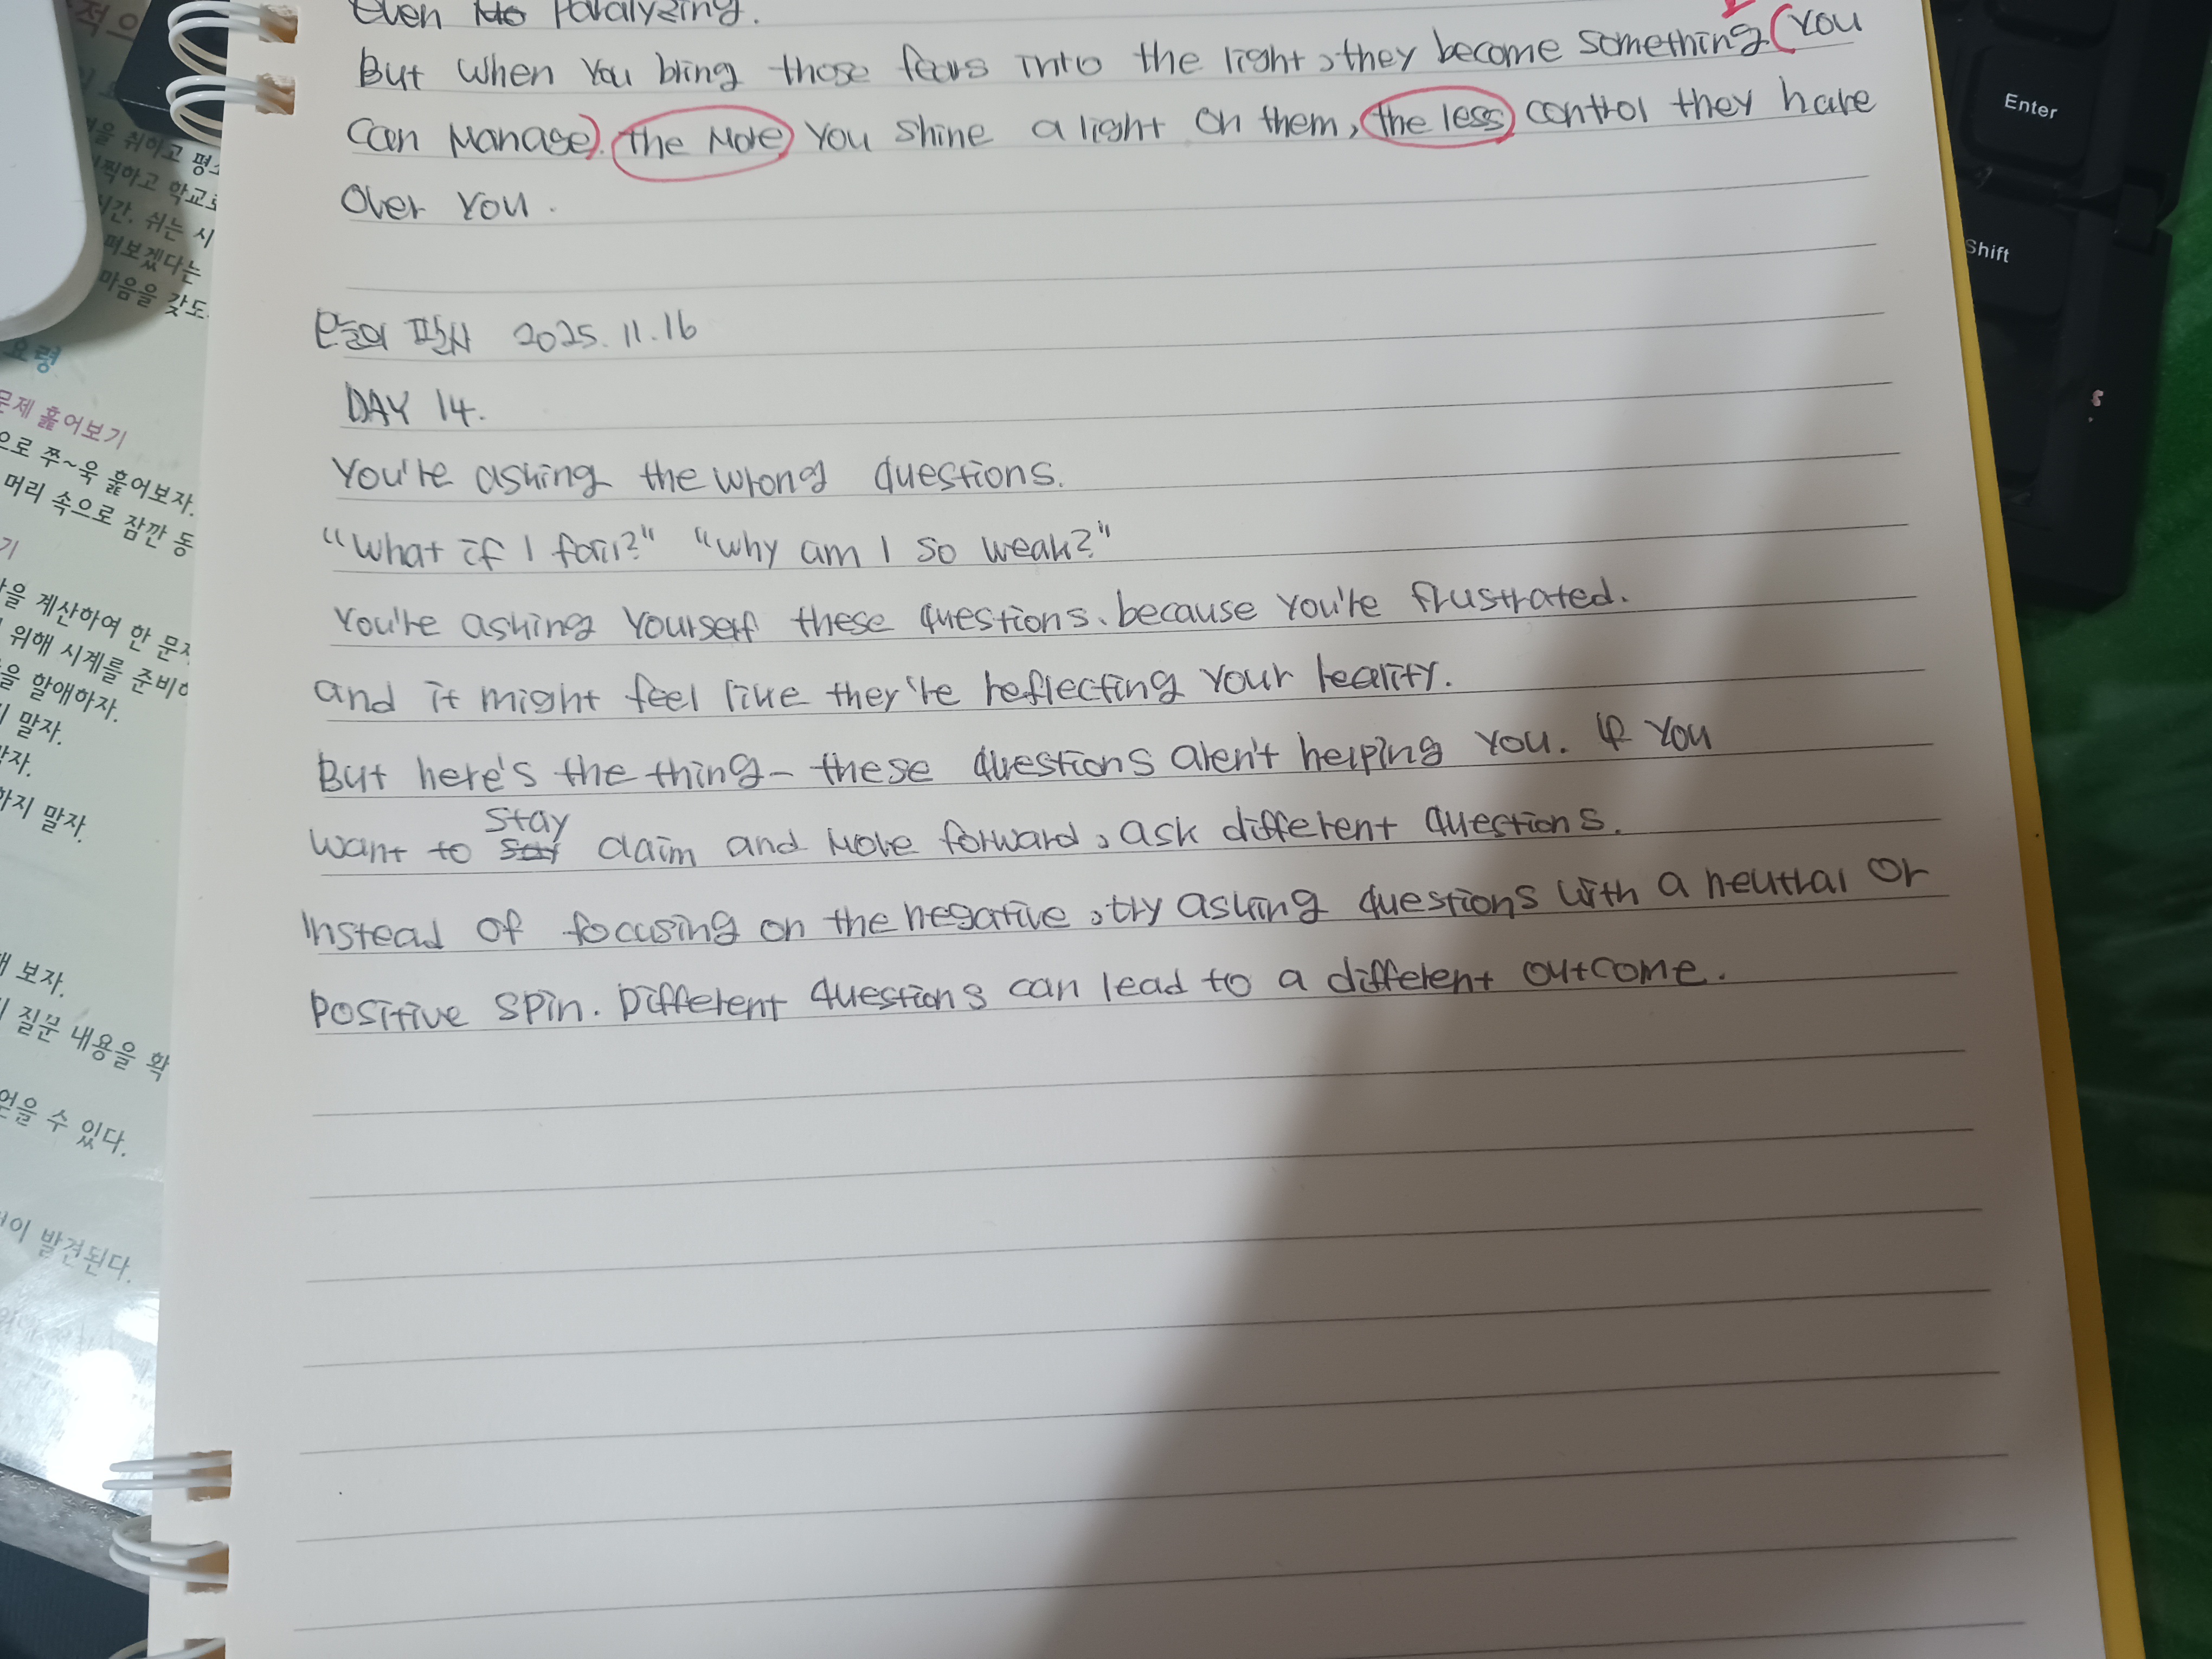 Even Paralyzing.
But when you bring those fears into the light, they become something (you
can manage). the more you shine a light on them, the less control they have
over you.
오늘의 필사 2025.11.16
DAY 14.
You're asking the wrong questions.
"What if I fail?" "why am I so weak?"
You're asking yourself these questions. because you're frustrated.
and it might feel like they're reflecting your reality.
But here's the thing- these questions aren't helping you. If you
want to stay claim and move forward, ask different questions.
Instead of focusing on the negative, try asking questions with a neutral or
positive spin. Different questions can lead to a different outcome.
Enter
Shift
적으
을 취하고 평소
찍하고 학교
시간, 쉬는 시
펴보겠다는
마음을 갖도
요령
문제 훑어보기
으로 쭈~욱 훑어보자.
머리 속으로 잠깐 동
기
을 계산하여 한 문
위해 시계를 준비하
을 할애하자.
말자.
말자.
하지 말자.
해 보자.
질문 내용을 확
얻을 수 있다.
이 발견된다.